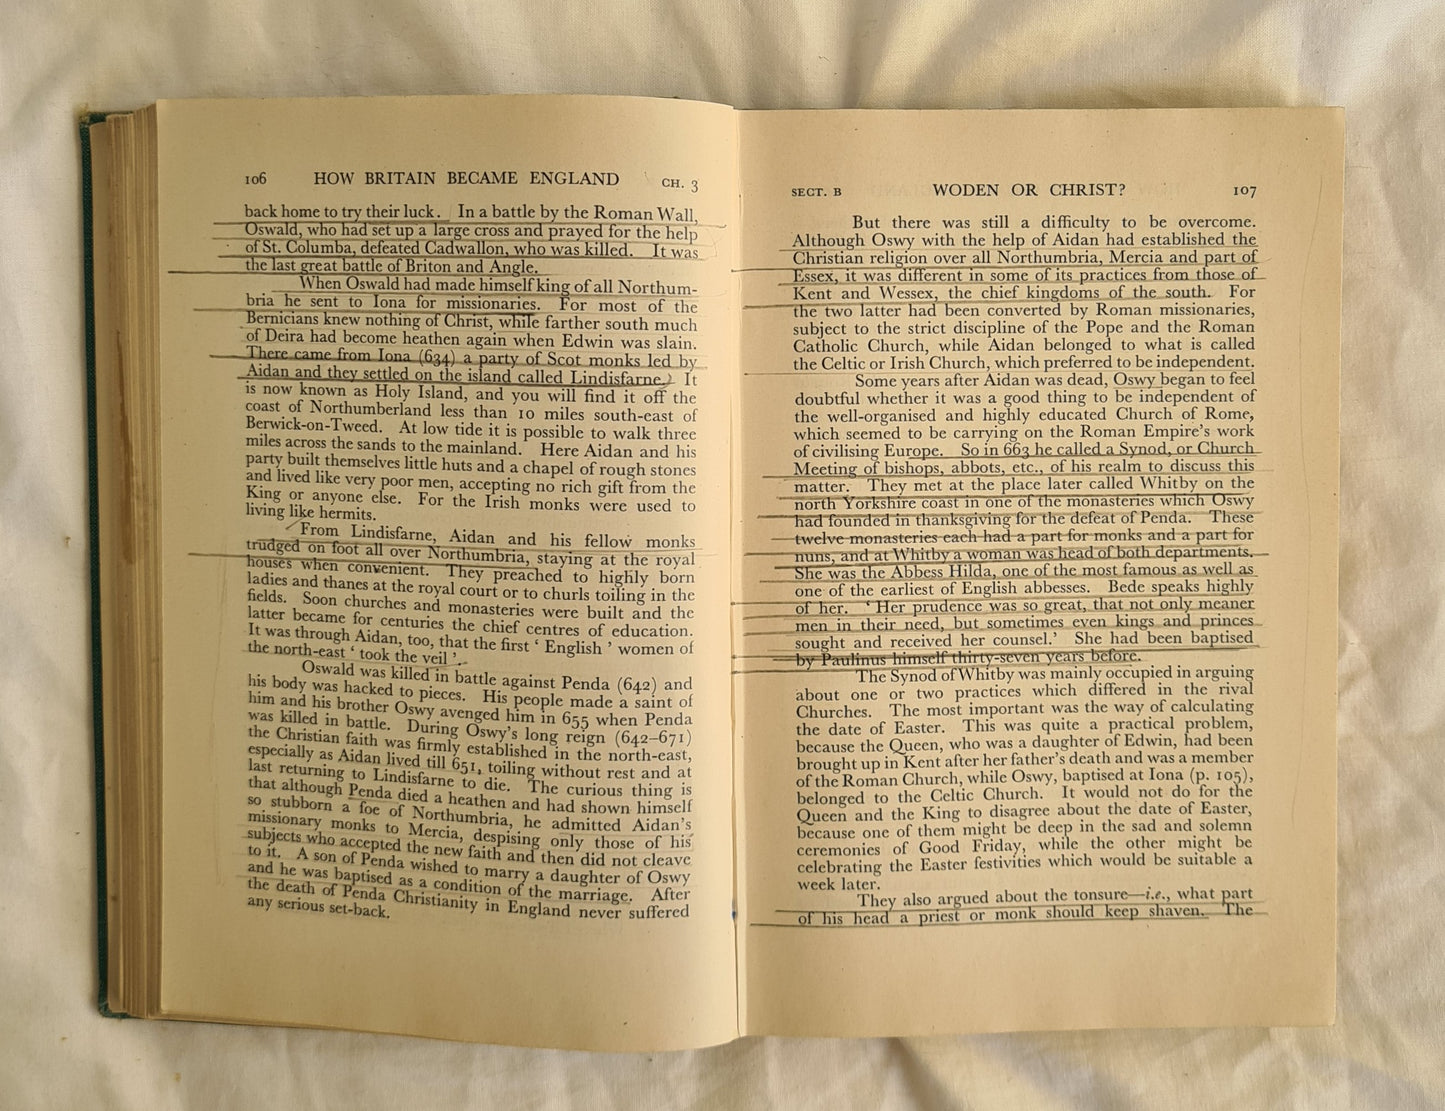 106 HOW BRITAIN BECAME ENGLAND CH. 3
back home to try their luck. In a battle by the Roman Wall,
Oswald, who had set up a large cross and prayed for the help
of St. Columba, defeated Cadwallon, who was killed. It was
the last great battle of Briton and Angle.
When Oswald had made himself king of all Northum-
bria he sent to Iona for missionaries. For most of the
Bernicians knew nothing of Christ, while farther south much
of Deira had become heathen again when Edwin was slain.
There came from Iona (634) a party of Scot monks led by
Aidan and they settled on the island called Lindisfarne. It
is now known as Holy Island, and you will find it off the
coast of Northumberland less than 10 miles south-east of
Berwick-on-Tweed. At low tide it is possible to walk three
miles across the sands to the mainland. Here Aidan and his
party built themselves little huts and a chapel of rough stones
and lived like very poor men, accepting no rich gift from the
King or anyone else. For the Irish monks were used to
living like hermits.
From Lindisfarne, Aidan and his fellow monks
trudged on foot all over Northumbria, staying at the royal
houses when convenient. They preached to highly born
ladies and thanes at the royal court or to churls toiling in the
fields. Soon churches and monasteries were built and the
latter became for centuries the chief centres of education.
It was through Aidan, too, that the first ‘ English ’ women of
the north-east ‘ took the veil ’.
Oswald was killed in battle against Penda (642) and
his body was hacked to pieces. His people made a saint of
him and his brother Oswy avenged him in 655 when Penda
was killed in battle. During Oswy's long reign (642–671)
the Christian faith was firmly established in the north-east,
especially as Aidan lived till 651, toiling without rest and at
last returning to Lindisfarne to die. The curious thing is
that although Penda died a heathen and had shown himself
so stubborn a foe of Northumbria, he admitted Aidan's
missionary monks to Mercia, despising only those of his
subjects who accepted the new faith and then did not cleave
to it. A son of Penda wished to marry a daughter of Oswy
and he was baptised as a condition of the marriage. After
the death of Penda Christianity in England never suffered
any serious set-back.
SECT. B WODEN OR CHRIST? 107
But there was still a difficulty to be overcome.
Although Oswy with the help of Aidan had established the
Christian religion over all Northumbria, Mercia and part of
Essex, it was different in some of its practices from those of
Kent and Wessex, the chief kingdoms of the south. For
the two latter had been converted by Roman missionaries,
subject to the strict discipline of the Pope and the Roman
Catholic Church, while Aidan belonged to what is called
the Celtic or Irish Church, which preferred to be independent.
Some years after Aidan was dead, Oswy began to feel
doubtful whether it was a good thing to be independent of
the well-organised and highly educated Church of Rome,
which seemed to be carrying on the Roman Empire's work
of civilising Europe. So in 663 he called a Synod, or Church
Meeting of bishops, abbots, etc., of his realm to discuss this
matter. They met at the place later called Whitby on the
north Yorkshire coast in one of the monasteries which Oswy
had founded in thanksgiving for the defeat of Penda. These
twelve monasteries each had a part for monks and a part for
nuns, and at Whitby a woman was head of both departments.
She was the Abbess Hilda, one of the most famous as well as
one of the earliest of English abbesses. Bede speaks highly
of her. ‘ Her prudence was so great, that not only meaner
men in their need, but sometimes even kings and princes
sought and received her counsel.’ She had been baptised
by Paulinus himself thirty-seven years before.
The Synod of Whitby was mainly occupied in arguing
about one or two practices which differed in the rival
Churches. The most important was the way of calculating
the date of Easter. This was quite a practical problem,
because the Queen, who was a daughter of Edwin, had been
brought up in Kent after her father's death and was a member
of the Roman Church, while Oswy, baptised at Iona (p. 105),
belonged to the Celtic Church. It would not do for the
Queen and the King to disagree about the date of Easter,
because one of them might be deep in the sad and solemn
ceremonies of Good Friday, while the other might be
celebrating the Easter festivities which would be suitable a
week later.
They also argued about the tonsure—i.e., what part
of his head a priest or monk should keep shaven. The